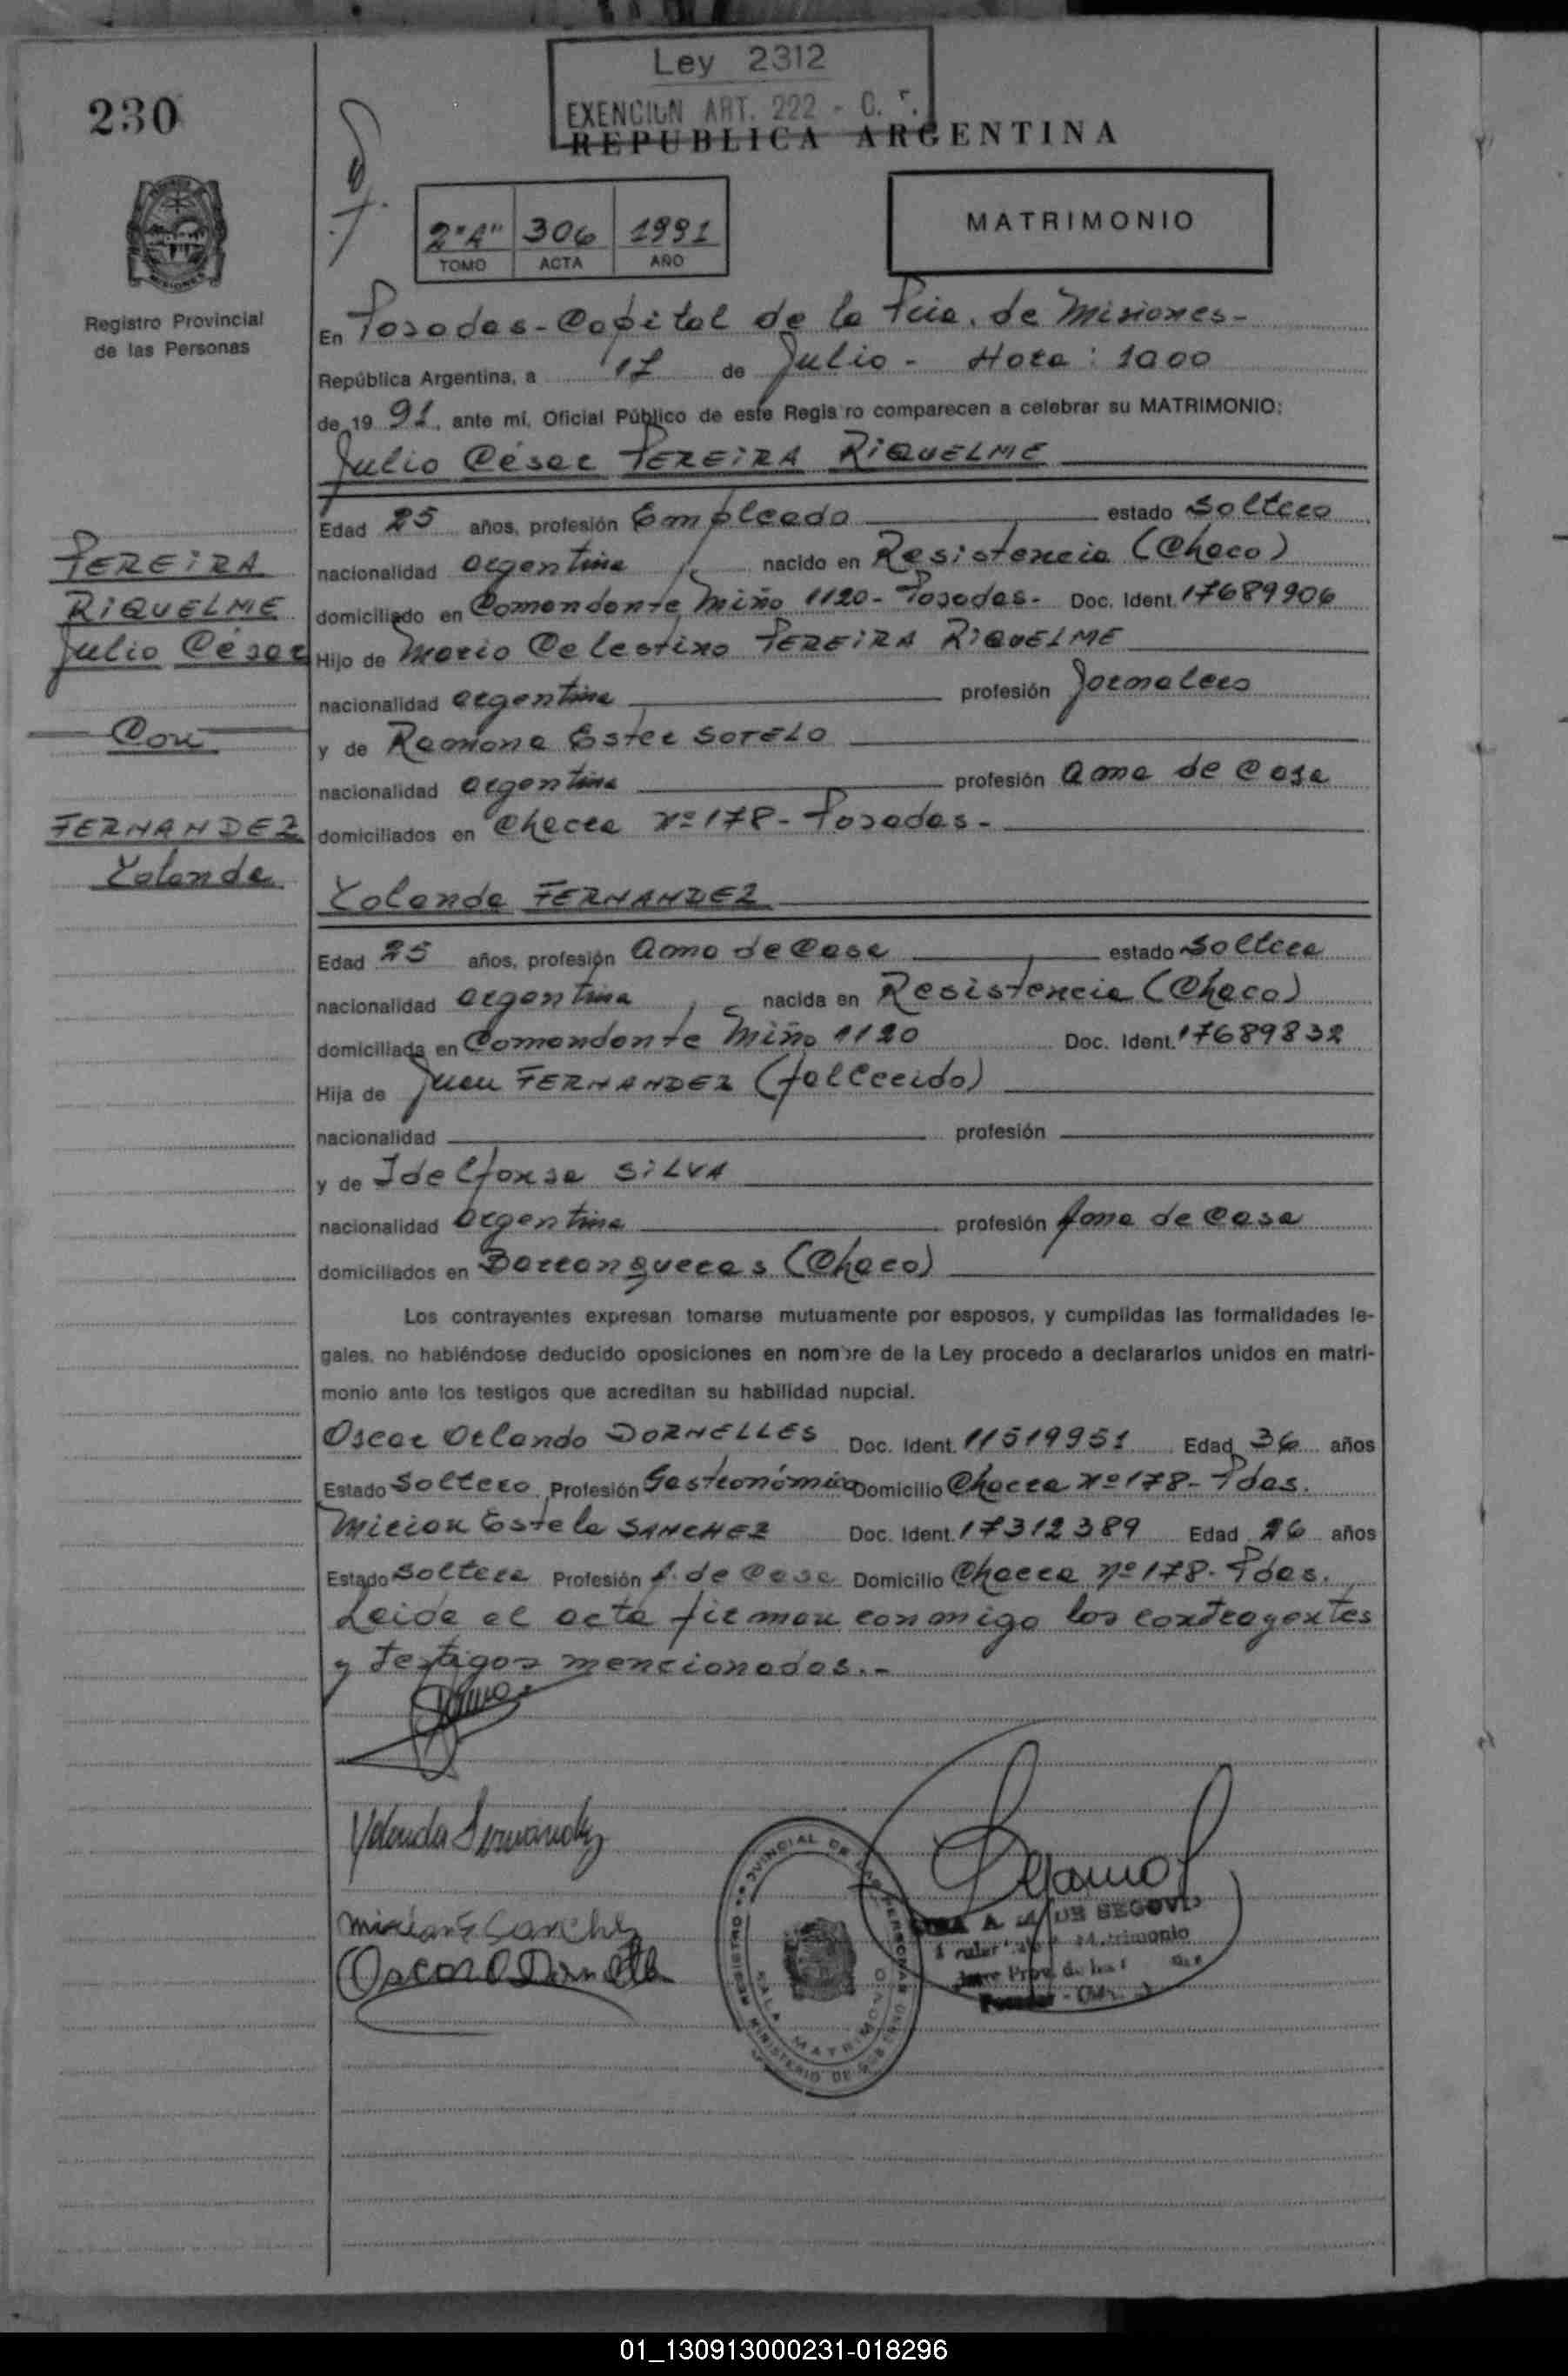 Ley 2312
EXENCION ART. 222 - C.
REPUBLICA ARGENTINA
230
2"A" 306 1991
TOMO ACTA AÑO
MATRIMONIO
MISIONES
Registro Provincial
de las Personas
En Posadas - Capital de la Pcia. de Misiones -
República Argentina, a 17 de Julio - Hora: 1000
de 1991, ante mí, Oficial Público de este Regis ro comparecen a celebrar su MATRIMONIO:
Julio César PEREIRA RIQUELME
Edad 25 años, profesión Empleado estado Soltero
nacionalidad argentina nacido en Resistencia (Chaco)
domiciliado en Comandante Miño 1120 - Posadas - Doc. Ident. 17689906
Hijo de Mario Celestino PEREIRA RIQUELME
nacionalidad argentina profesión Jornalero
y de Ramona Ester SOTELO
nacionalidad argentina profesión Ama de Casa
domiciliados en Chacra Nº 178 - Posadas -
PEREIRA
RIQUELME
Julio César
Con
FERNANDEZ
Yolanda
Yolanda FERNANDEZ
Edad 25 años, profesión Ama de Casa estado Soltera
nacionalidad argentina nacida en Resistencia (Chaco)
domiciliada en Comandante Miño 1120 Doc. Ident. 17689832
Hija de Juan FERNANDEZ (fallecido)
nacionalidad profesión
y de Idelfonsa SILVA
nacionalidad argentina profesión Ama de Casa
domiciliados en Barranqueras (Chaco)
Los contrayentes expresan tomarse mutuamente por esposos, y cumplidas las formalidades le-
gales, no habiéndose deducido oposiciones en nombre de la Ley procedo a declararlos unidos en matri-
monio ante los testigos que acreditan su habilidad nupcial.
Oscar Orlando DORNELLES Doc. Ident. 11519951 Edad 36 años
Estado Soltero Profesión Gastronómico Domicilio Chacra Nº 178 - Pdas.
Mirian Estela SANCHEZ Doc. Ident. 17312389 Edad 26 años
Estado Soltera Profesión A. de Casa Domicilio Chacra Nº 178 - Pdas.
Leida el acta firman conmigo los contrayentes
y testigos mencionados.-
Yolanda Fernandez
Mirian E Sanchez
Oscar O Dornelles
REGISTRO PROVINCIAL DE LAS PERSONAS
SALA MATRIMONIO
MINISTERIO DE GOBIERNO
DE SEGOVIA
Matrimonio
Prov. de las
Posadas - (Mnes.)
01_130913000231-018296